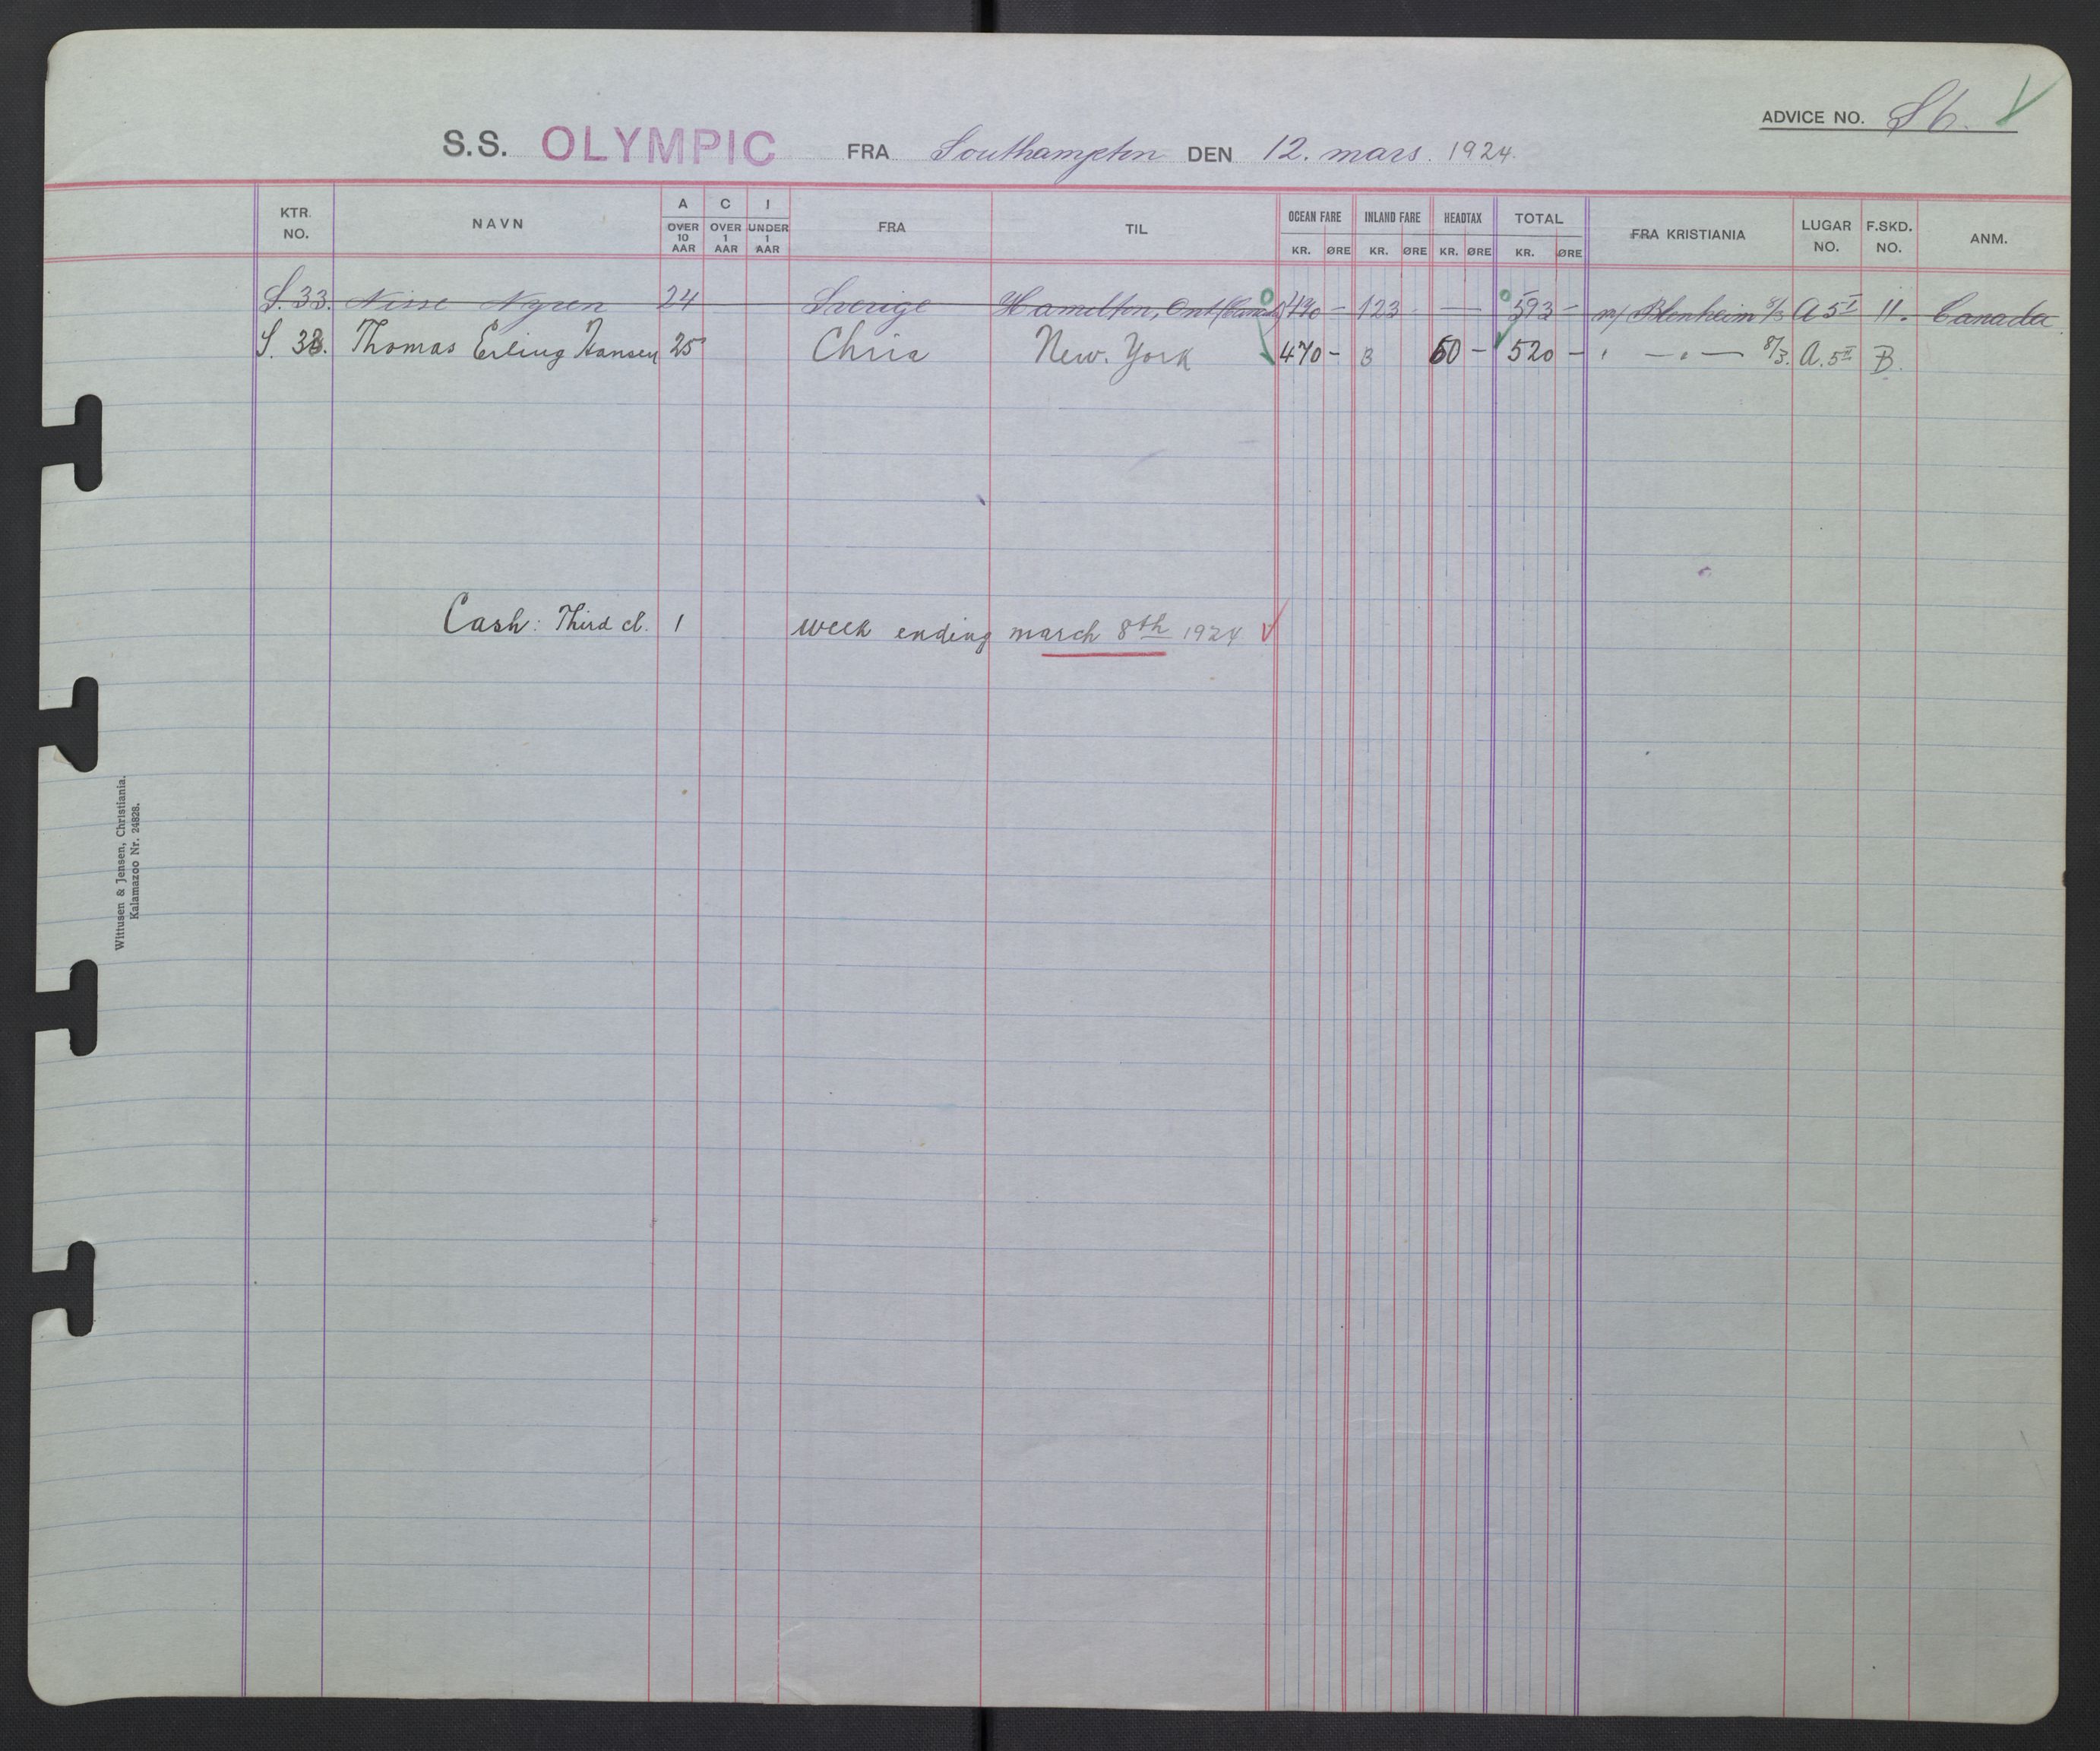 ADVICE NO. S 6.
S.S. OLYMPIC FRA Southampton DEN 12. mars. 1924.
KTR. NO. NAVN A OVER 10 AAR C OVER 1 AAR I UNDER 1 AAR FRA TIL OCEAN FARE KR. ØRE INLAND FARE KR. ØRE HEADTAX KR. ØRE TOTAL KR. ØRE FRA KRISTIANIA LUGAR NO. F.SKD. NO. ANM.
S. 33. Nisse Nyren 24 Sverige Hamilton, Ont. 470 - 123 - — 593 - m/ Blenheim 8/3 A 5 I 11. Canada.
S. 38. Thomas Erling Hansen 25 Chria New. York 470 - 50 - 520 - " — " — 8/3. A. 5 II B.
Cash: Third cl. 1 week ending march 8th 1924
Wittusen & Jensen, Christiania.
Kalamazoo Nr. 24828.